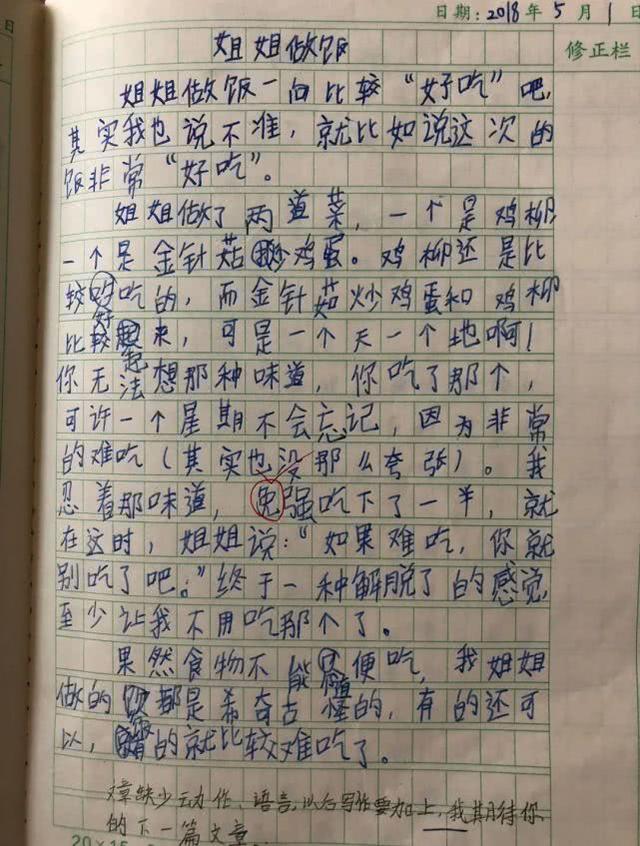 日期：2018年5月1日
修正栏
姐姐做饭
姐姐做饭一向比较“好吃”吧，
其实我也说不准，就比如说这次的
饭非常“好吃”。
姐姐做了两道菜，一个是鸡柳
一个是金针菇炒鸡蛋。鸡柳还是比
较好吃的，而金针菇炒鸡蛋和鸡柳
比较起来，可是一个天一个地啊！
你无法想那种味道，你吃了那个，
可许一个星期不会忘记，因为非常
的难吃（其实也没那么夸张）。我
忍着那味道，免强吃下了一半，就
在这时，姐姐说：“如果难吃，你就
别吃了吧。”终于一种解脱了的感觉，
至少让我不用吃那个了。
果然食物不能随便吃，我姐姐
做的饭都是希奇古怪的，有的还可
以，有的就比较难吃了。
文章缺少动作、语言，以后写作要加上，我期待你
的下一篇文章